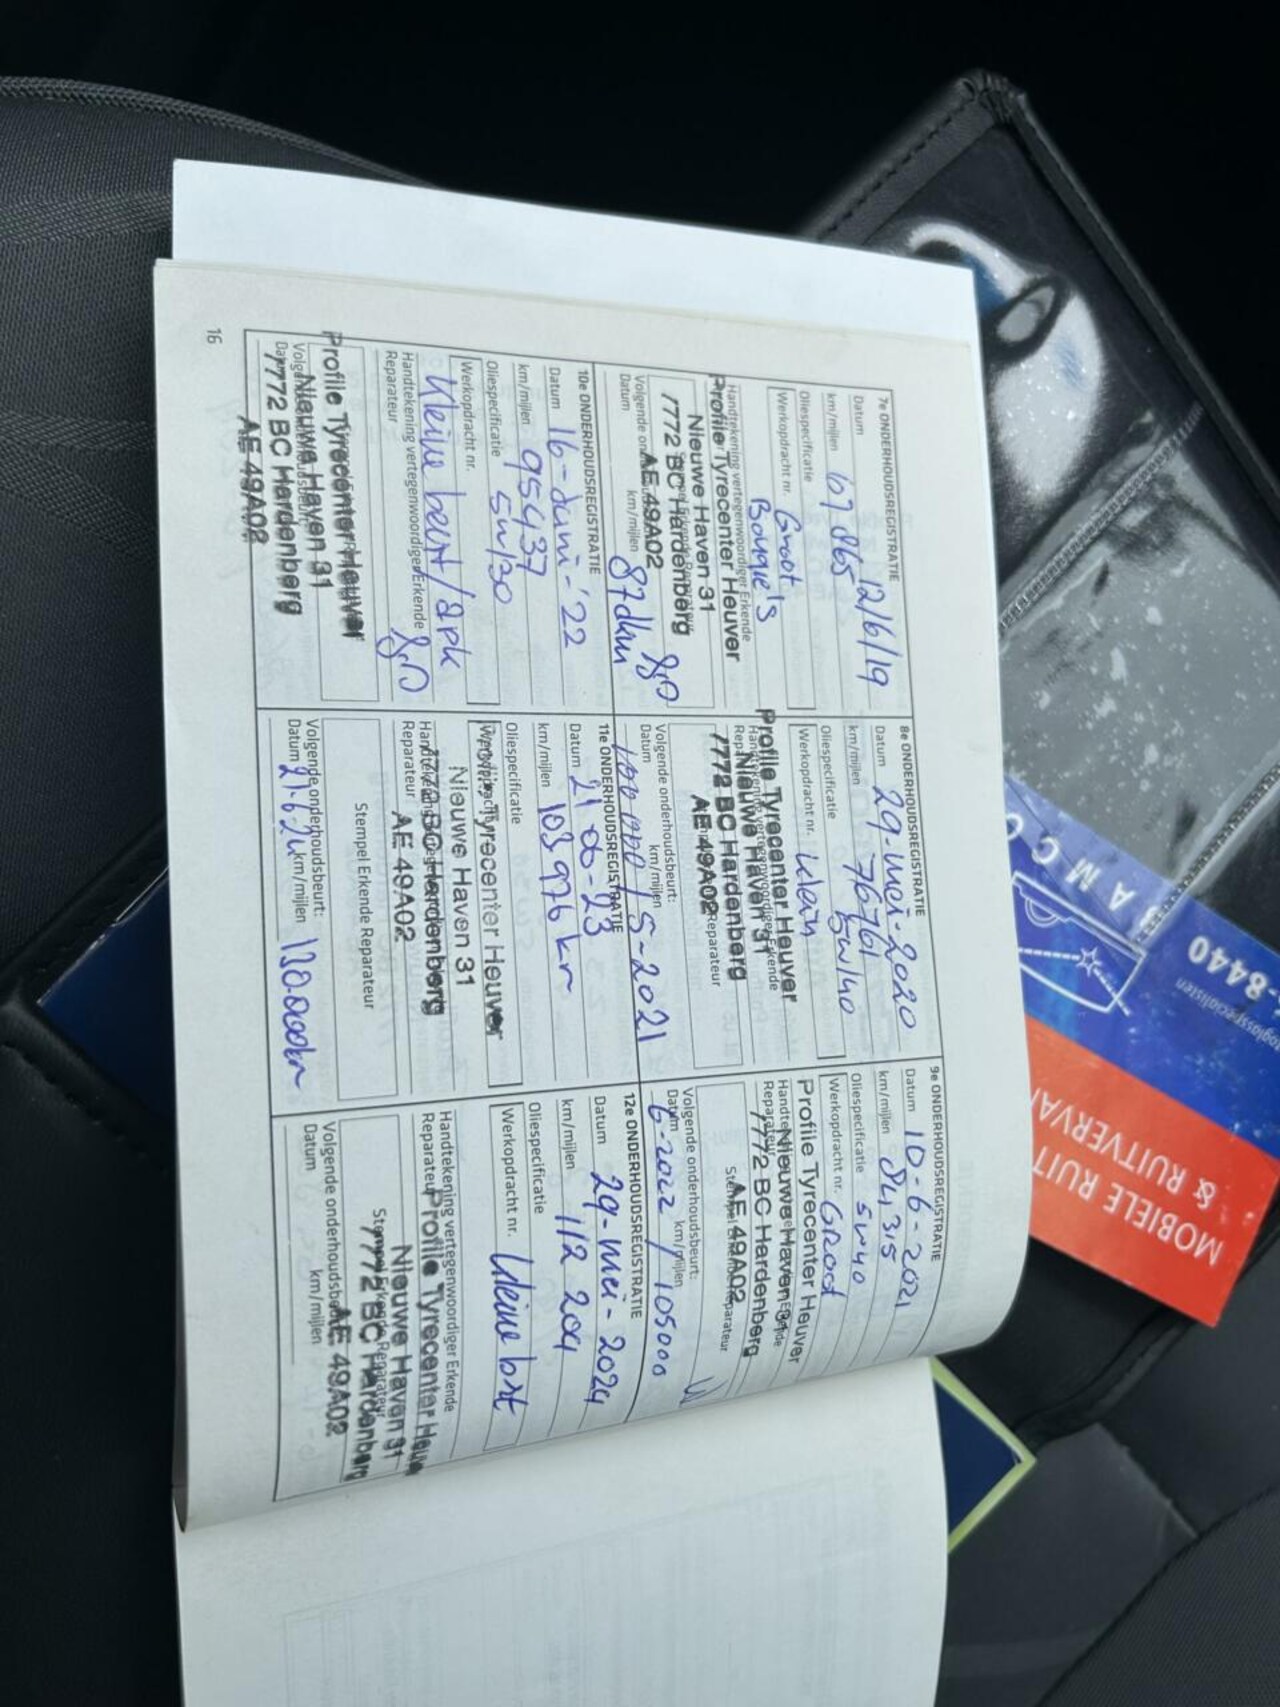 7e ONDERHOUDSREGISTRATIE
Datum 12/6/19
km/mijlen 67.865
Oliespecificatie
Werkopdracht nr. Groot
Bougie's
Handtekening vertegenwoordiger Erkende
Profile Tyrecenter Heuver
Nieuwe Haven 31
7772 BC Hardenberg
AE 49A02
Volgende
Datum km/mijlen 87dkm
8e ONDERHOUDSREGISTRATIE
Datum 29-mei-2020
km/mijlen 76761
Oliespecificatie 5w/40
Werkopdracht nr. klein
Handtekening vertegenwoordiger Erkende
Profile Tyrecenter Heuver
Nieuwe Haven 31
7772 BC Hardenberg
AE 49A02
Reparateur
Volgende onderhoudsbeurt:
Datum km/mijlen
100.000 / 5-2021
9e ONDERHOUDSREGISTRATIE
Datum 10-6-2021
km/mijlen 84,315
Oliespecificatie 5w40
Werkopdracht nr. Groot
Profile Tyrecenter Heuver
Nieuwe Haven 31
Reparateur
7772 BC Hardenberg
AE 49A02
Volgende onderhoudsbeurt:
Datum km/mijlen
6-2022 / 105000
10e ONDERHOUDSREGISTRATIE
Datum 16-Juni-'22
km/mijlen 95437
Oliespecificatie 5w/30
Werkopdracht nr.
Kleine beurt/apk
Handtekening vertegenwoordiger Erkende
Reparateur
Profile Tyrecenter Heuver
Nieuwe Haven 31
7772 BC Hardenberg
AE 49A02
11e ONDERHOUDSREGISTRATIE
Datum 21-06-23
km/mijlen 103976 km
Oliespecificatie
Profile Tyrecenter Heuver
Nieuwe Haven 31
7772 BC Hardenberg
Reparateur AE 49A02
Stempel Erkende Reparateur
Volgende onderhoudsbeurt:
Datum 21-6-24 km/mijlen
12e ONDERHOUDSREGISTRATIE
Datum 29-mei-2024
km/mijlen 112 204
Oliespecificatie
Werkopdracht nr. kleine brt
Handtekening vertegenwoordiger Erkende
Reparateur
Profile Tyrecenter Heuver
Nieuwe Haven 31
7772 BC Hardenberg
AE 49A02
Volgende onderhoudsbeurt
Datum km/mijlen
16
AMC
-8440
MOBIELE RUIT
& RUITVERVA